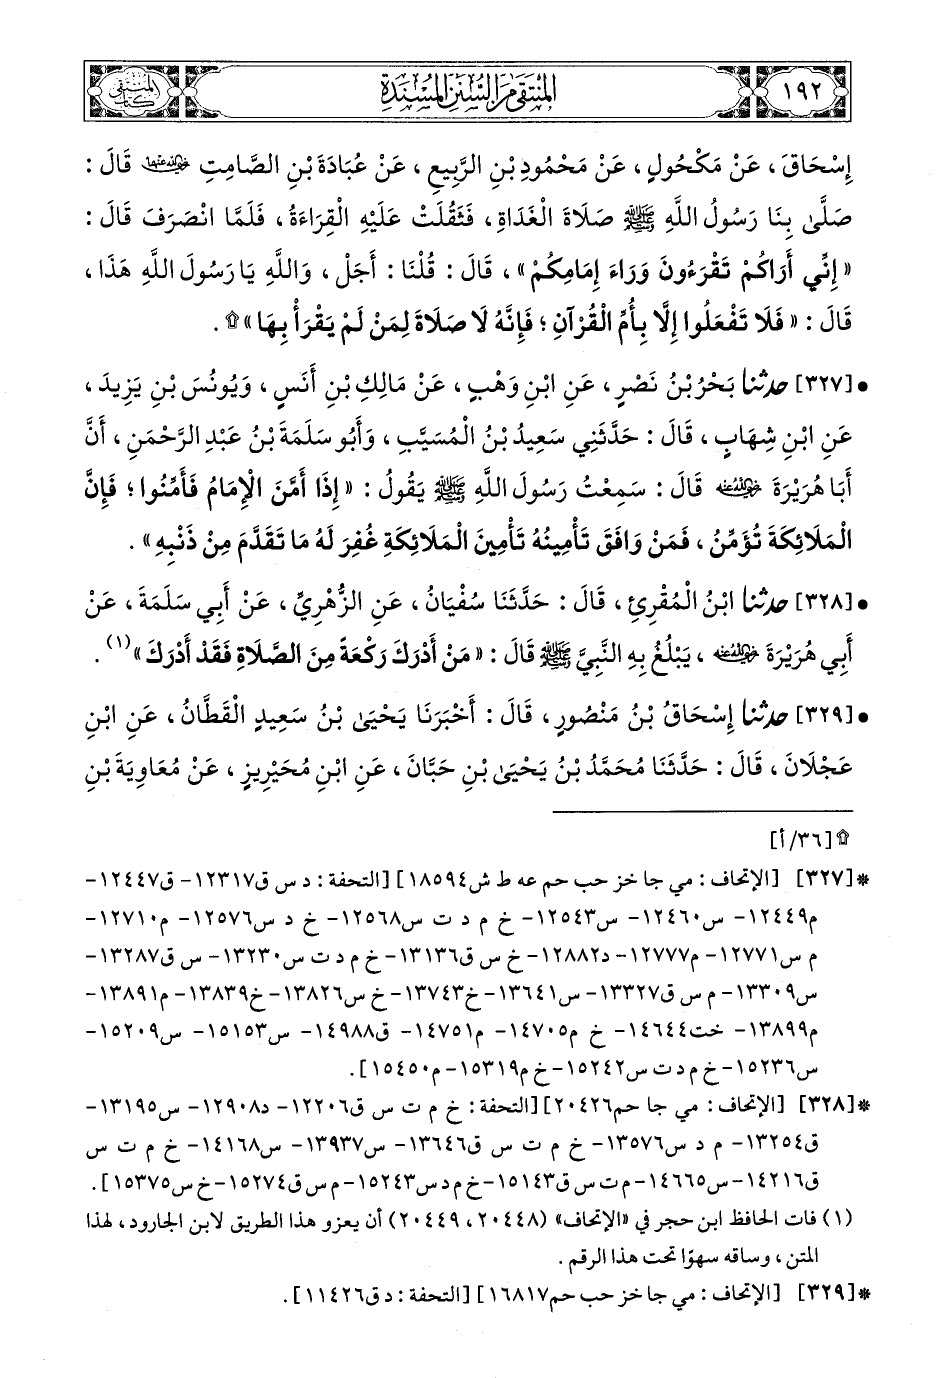 ١٩٢
المنتقى من السنن المسندة
كتاب المنتقى
إِسْحَاقَ، عَنْ مَكْحُولٍ، عَنْ مَحْمُودِ بْنِ الرَّبِيعِ، عَنْ عُبَادَةَ بْنِ الصَّامِتِ رَضِيَ اللَّهُ عَنْهُمَا قَالَ :
صَلَّىٰ بِنَا رَسُولُ اللَّهِ ﷺ صَلَاةَ الْغَدَاةِ، فَثَقُلَتْ عَلَيْهِ الْقِرَاءَةُ، فَلَمَّا انْصَرَفَ قَالَ :
«إِنِّي أَرَاكُمْ تَقْرَءُونَ وَرَاءَ إِمَامِكُمْ»، قَالَ : قُلْنَا : أَجَلْ، وَاللَّهِ يَا رَسُولَ اللَّهِ هَذَا،
قَالَ : «فَلَا تَفْعَلُوا إِلَّا بِأُمِّ الْقُرْآنِ ؛ فَإِنَّهُ لَا صَلَاةَ لِمَنْ لَمْ يَقْرَأْ بِهَا»۩ .
• [٣٢٧] حدثنا بَحْرُ بْنُ نَصْرٍ، عَنِ ابْنِ وَهْبٍ، عَنْ مَالِكِ بْنِ أَنَسٍ، وَيُونُسَ بْنِ يَزِيدَ،
عَنِ ابْنِ شِهَابٍ، قَالَ : حَدَّثَنِي سَعِيدُ بْنُ الْمُسَيَّبِ، وَأَبُو سَلَمَةَ بْنُ عَبْدِ الرَّحْمَنِ، أَنَّ
أَبَا هُرَيْرَةَ رَضِيَ اللَّهُ عَنْهُ قَالَ : سَمِعْتُ رَسُولَ اللَّهِ ﷺ يَقُولُ : «إِذَا أَمَّنَ الْإِمَامُ فَأَمِّنُوا ؛ فَإِنَّ
الْمَلَائِكَةَ تُؤَمِّنُ، فَمَنْ وَافَقَ تَأْمِينُهُ تَأْمِينَ الْمَلَائِكَةِ غُفِرَ لَهُ مَا تَقَدَّمَ مِنْ ذَنْبِهِ» .
• [٣٢٨] حدثنا ابْنُ الْمُقْرِئِ، قَالَ : حَدَّثَنَا سُفْيَانُ، عَنِ الزُّهْرِيِّ، عَنْ أَبِي سَلَمَةَ، عَنْ
أَبِي هُرَيْرَةَ رَضِيَ اللَّهُ عَنْهُ، يَبْلُغُ بِهِ النَّبِيَّ ﷺ قَالَ : «مَنْ أَدْرَكَ رَكْعَةً مِنَ الصَّلَاةِ فَقَدْ أَدْرَكَ»(١) .
• [٣٢٩] حدثنا إِسْحَاقُ بْنُ مَنْصُورٍ، قَالَ : أَخْبَرَنَا يَحْيَىٰ بْنُ سَعِيدٍ الْقَطَّانُ، عَنِ ابْنِ
عَجْلَانَ، قَالَ : حَدَّثَنَا مُحَمَّدُ بْنُ يَحْيَىٰ بْنِ حَبَّانَ، عَنِ ابْنِ مُحَيْرِيزٍ، عَنْ مُعَاوِيَةَ بْنِ
۩ [٣٦/ أ]
* [٣٢٧] [الإتحاف : مي جا خز حب حم عه ط ش١٨٥٩٤] [التحفة : د س ق١٢٣١٧- ق١٢٤٤٧-
م١٢٤٤٩- س١٢٤٦٠- س١٢٥٤٣- خ م د ت س١٢٥٦٨- خ د س١٢٥٧٦- م١٢٧١٠-
م س١٢٧٧١- م١٢٧٧٧- د١٢٨٨٢- خ س ق١٣١٣٦- خ م د ت س١٣٢٣٠- س ق١٣٢٨٧-
س١٣٣٠٩- م س ق١٣٣٢٧- س١٣٦٤١- خ١٣٧٤٣- خ س١٣٨٢٦- خ١٣٨٣٩- م١٣٨٩١-
م١٣٨٩٩- خت١٤٦٤٤- خ م١٤٧٠٥- م١٤٧٥١- ق١٤٩٨٨- س١٥١٥٣- س١٥٢٠٩-
س١٥٢٣٦- خ م د ت س١٥٢٤٢- خ م١٥٣١٩- م١٥٤٥٠] .
* [٣٢٨] [الإتحاف : مي جا حم٢٠٤٢٦] [التحفة : خ م ت س ق١٢٢٠٦- د١٢٩٠٨- س١٣١٩٥-
ق١٣٢٥٤- م د س١٣٥٧٦- خ م ت س ق١٣٦٤٦- س١٣٩٣٧- س١٤١٦٨- خ م ت س
ق١٤٢١٦- س١٤٦٦٥- م ت س ق١٥١٤٣- خ م د س١٥٢٤٣- م س ق١٥٢٧٤- خ س١٥٣٧٥] .
(١) فات الحافظ ابن حجر في «الإتحاف» (٢٠٤٤٨، ٢٠٤٤٩) أن يعزو هذا الطريق لابن الجارود، لهذا
المتن، وساقه سهوًا تحت هذا الرقم .
* [٣٢٩] [الإتحاف : مي جا خز حب حم١٦٨١٧] [التحفة : د ق١١٤٢٦] .